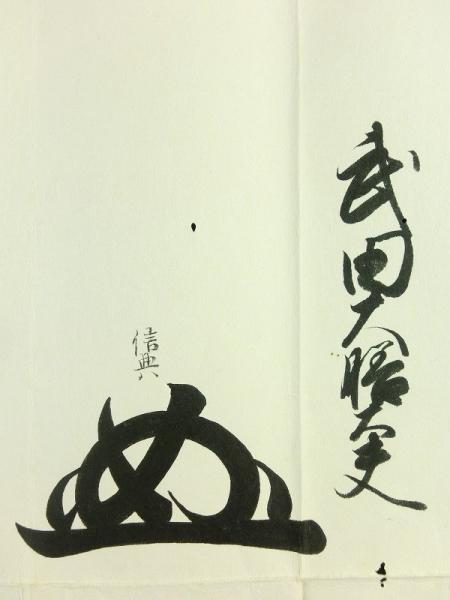 武田大膳大夫
信典